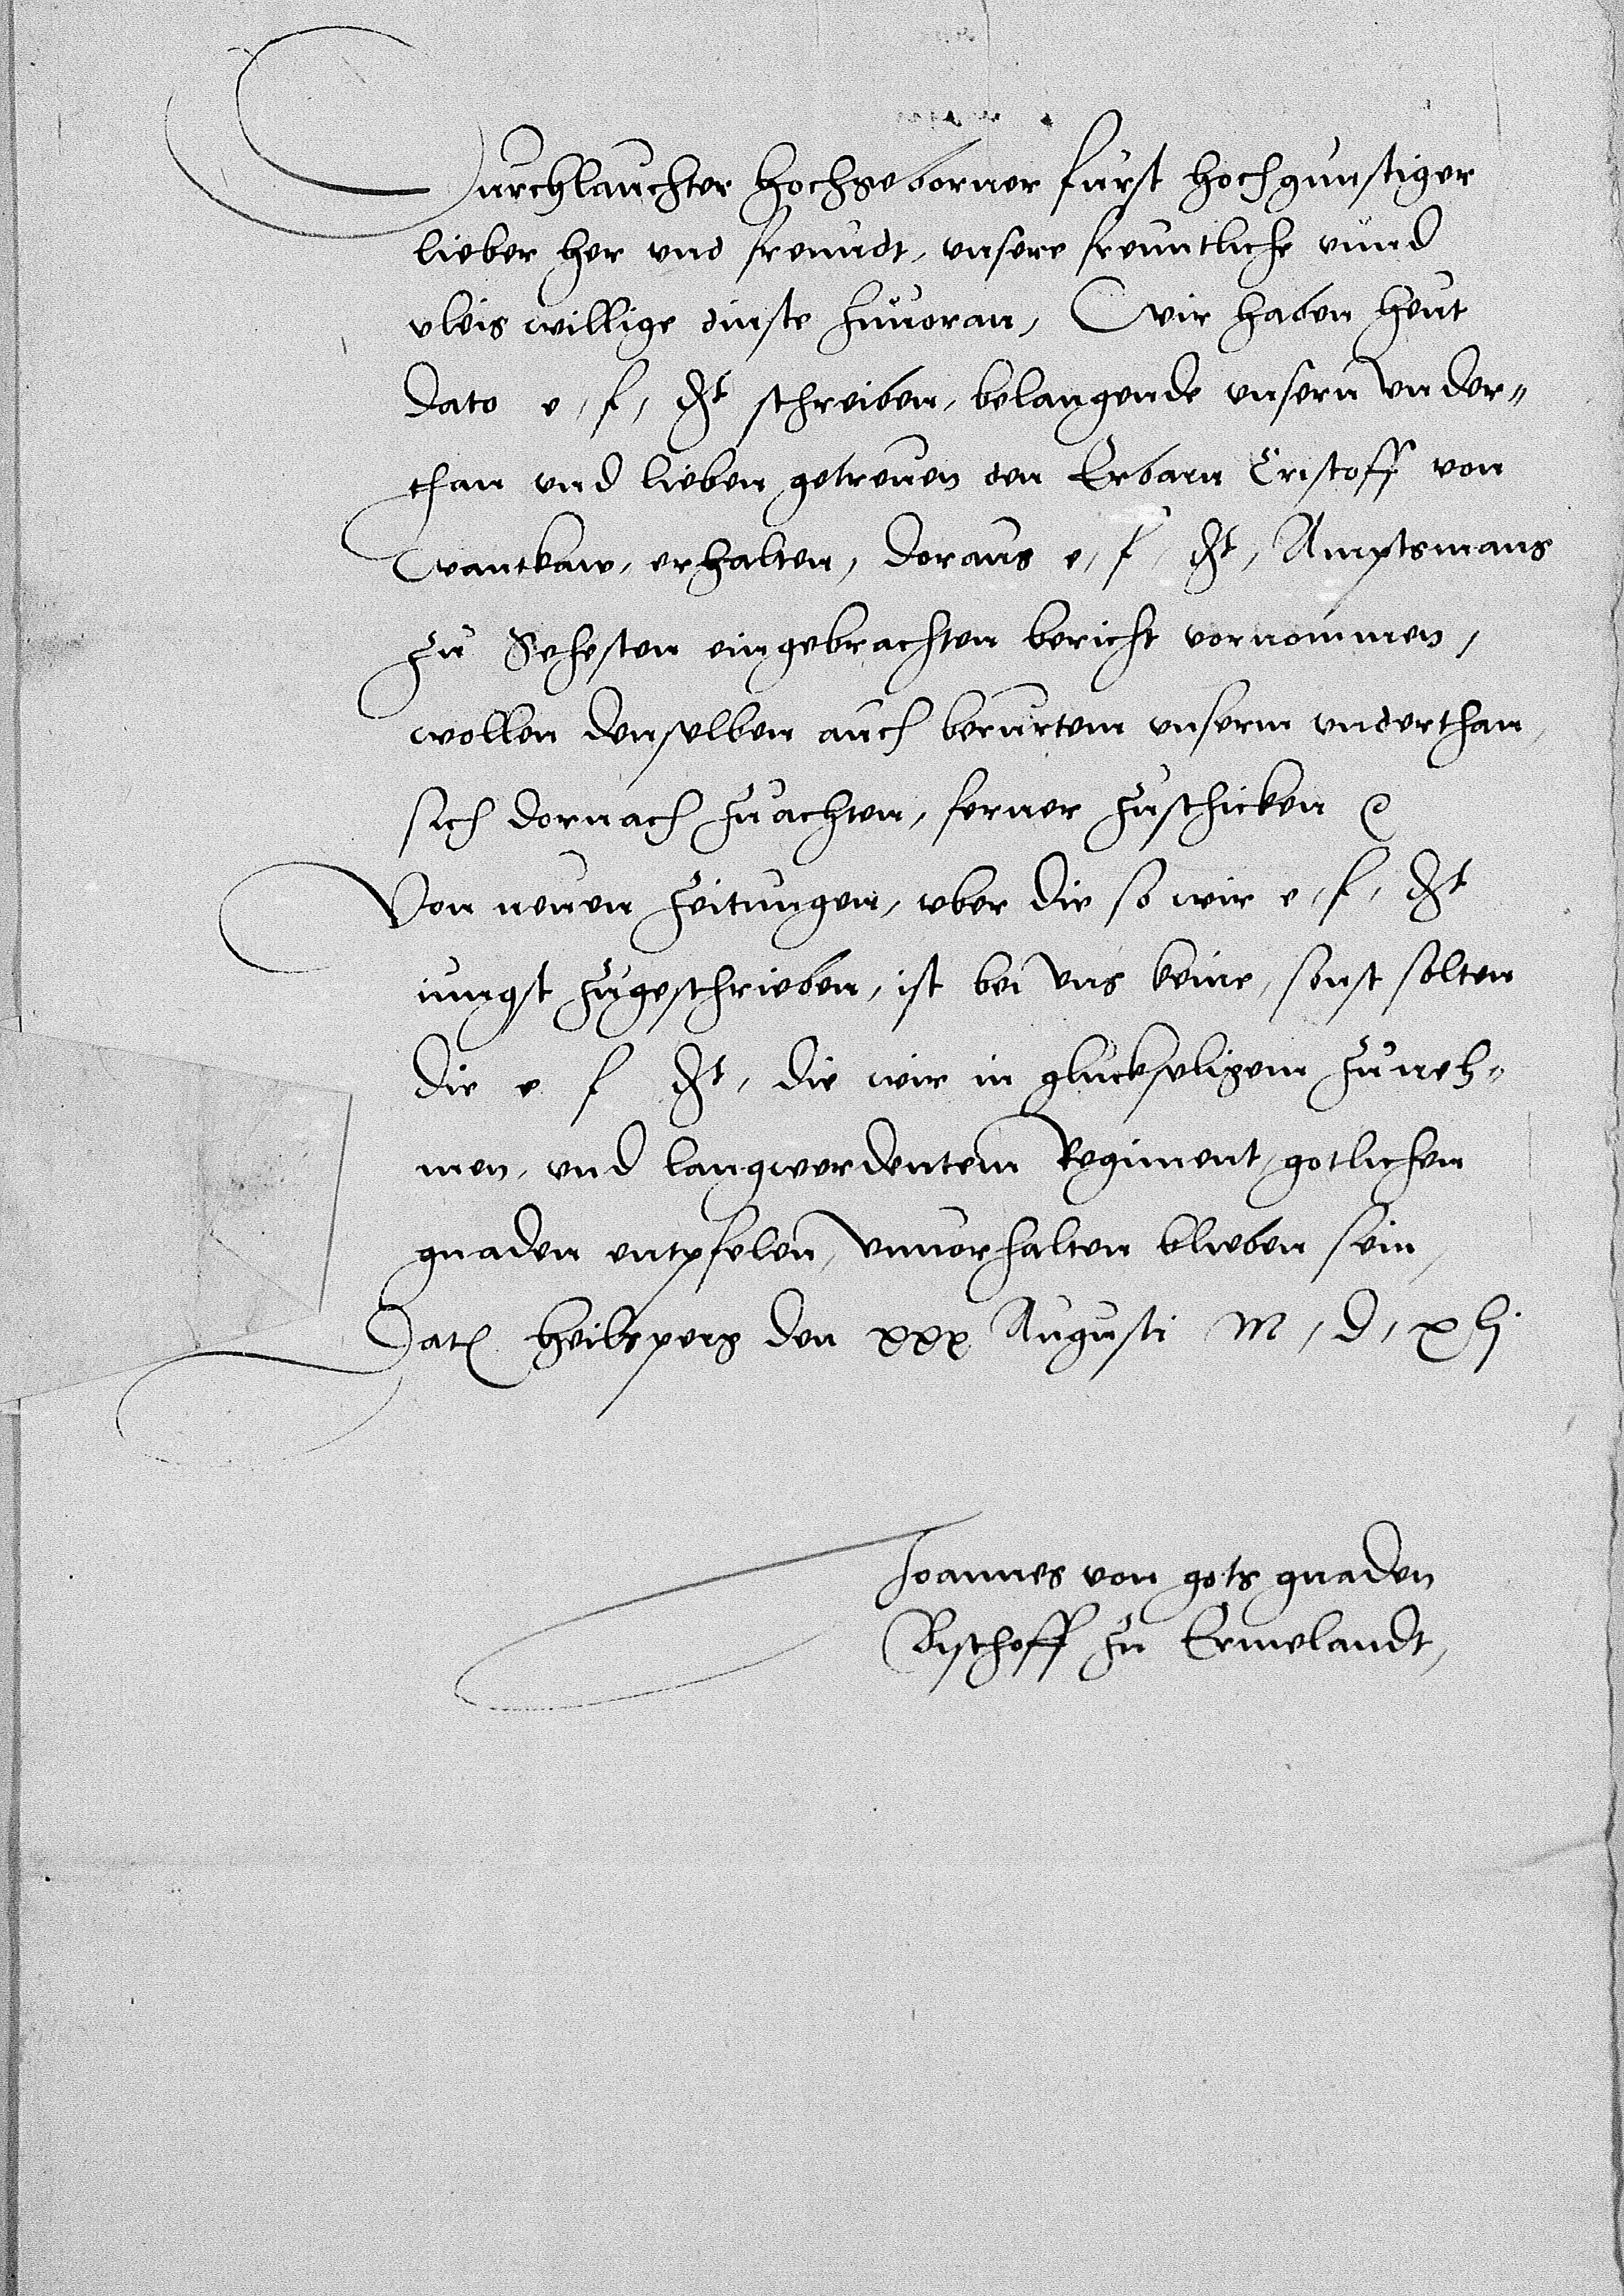 Durchlauchter hochgeborner furst hochgunstiger
lieber her und freundt, unsere freuntliche unnd
vleis willige dinste zuuoran, Wir haben heut
dato e, f, dt schreiben, belangende unsern under-
than und lieben getreuen den Erbarn Cristoff von
Wantkaw, erhalten, doraus e, f, dt, Amptsmans
zu Sehesten eingebrachten bericht vornommen,
wollen denselben auch berurtem unserm underthan,
sich dornach zuachten, ferner zuschicken
Von neuen zeitungen, uber die so wir e, f, dt
jungst zugeschrieben, ist bei uns keine, sonst solten
die e f dt, die wir in gluckseligem zuneh-
men, und langwerdentem Regiment, gotlichen
gnaden entpfelen, unuorhalten blieben sein,
Dat Heilsperg den xxx Augusti M, d, xlj
Joannes von gots gnaden
Bischoff zu Ermelandt,